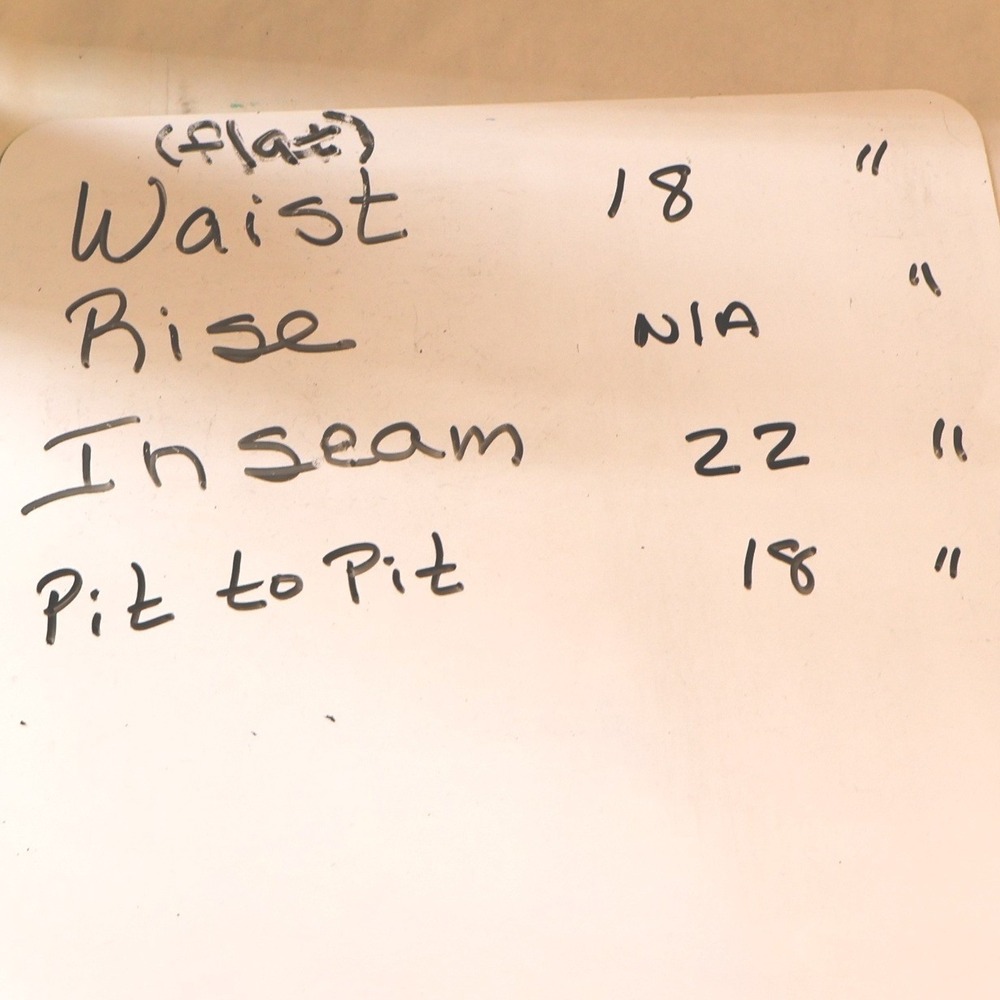 (flat)
Waist 18 "
Rise N/A "
Inseam 22 "
Pit to Pit 18 "